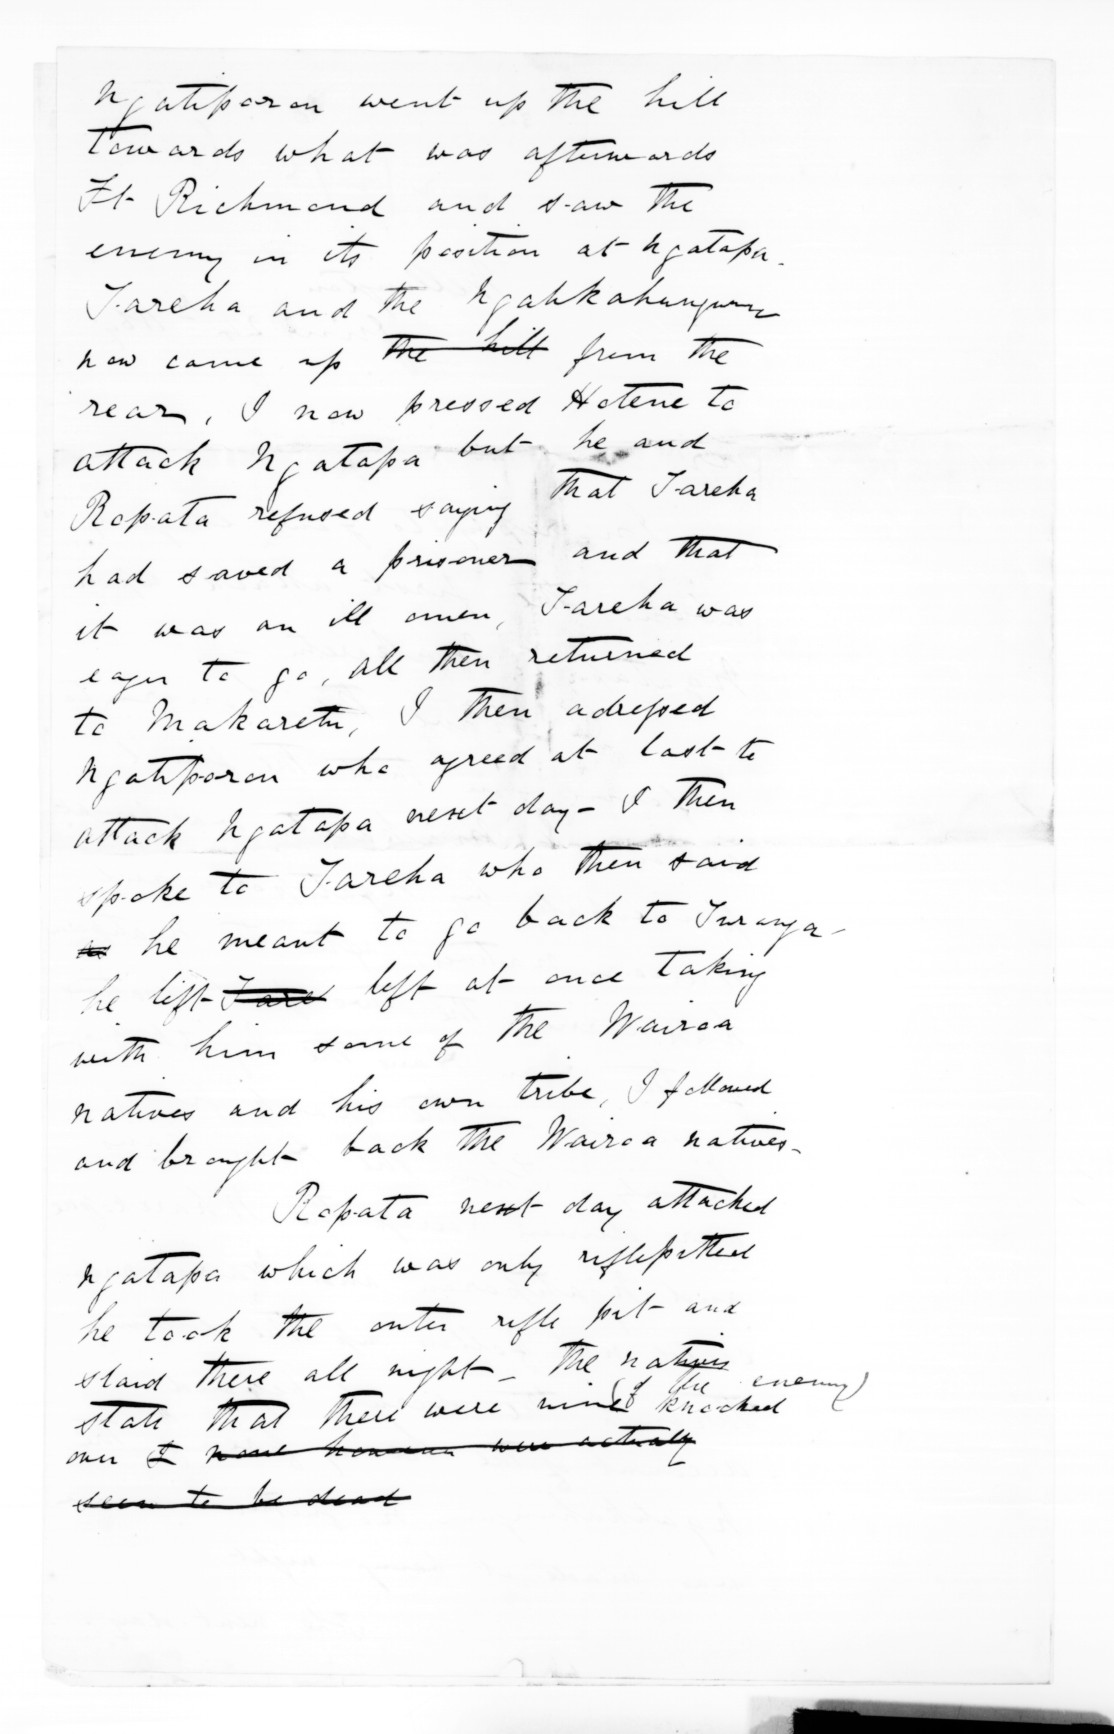 Ngatiporou went up the hill
towards what was afterwards
Ft Richmond and saw the
enemy in its position at Ngatapa.
Tareha and the Ngahkahungunu
now came up the hill from the
rear, I now pressed Hotene to
attack Ngatapa but he and
Ropata refused saying that Tareha
had saved a prisoner and that
it was an ill omen, Tareha was
eager to go, all then returned
to Makaretu, I then adressed
Ngatiporou who agreed at last to
attack Ngatapa next day - I then
spoke to Tareha who then said
as he meant to go back to Turanga -
he left Tare left at once taking
with him some of the Wairoa
natives and his own tribe, I followed
and brought back the Wairoa natives -
Ropata next day attacked
Ngatapa which was only riflepitted
he took the outer rifle pit and
staid there all night - the natives
(of the enemy)
state that there were nine knocked
over I none however were actually
seen to be dead